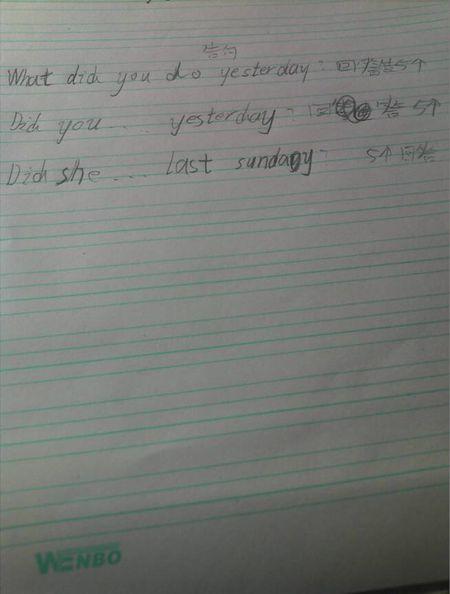 答句
What did you do yesterday: 回答5个
Did you ... yesterday: 回答 5个
Did she ... last sunday 5个回答
WENBO